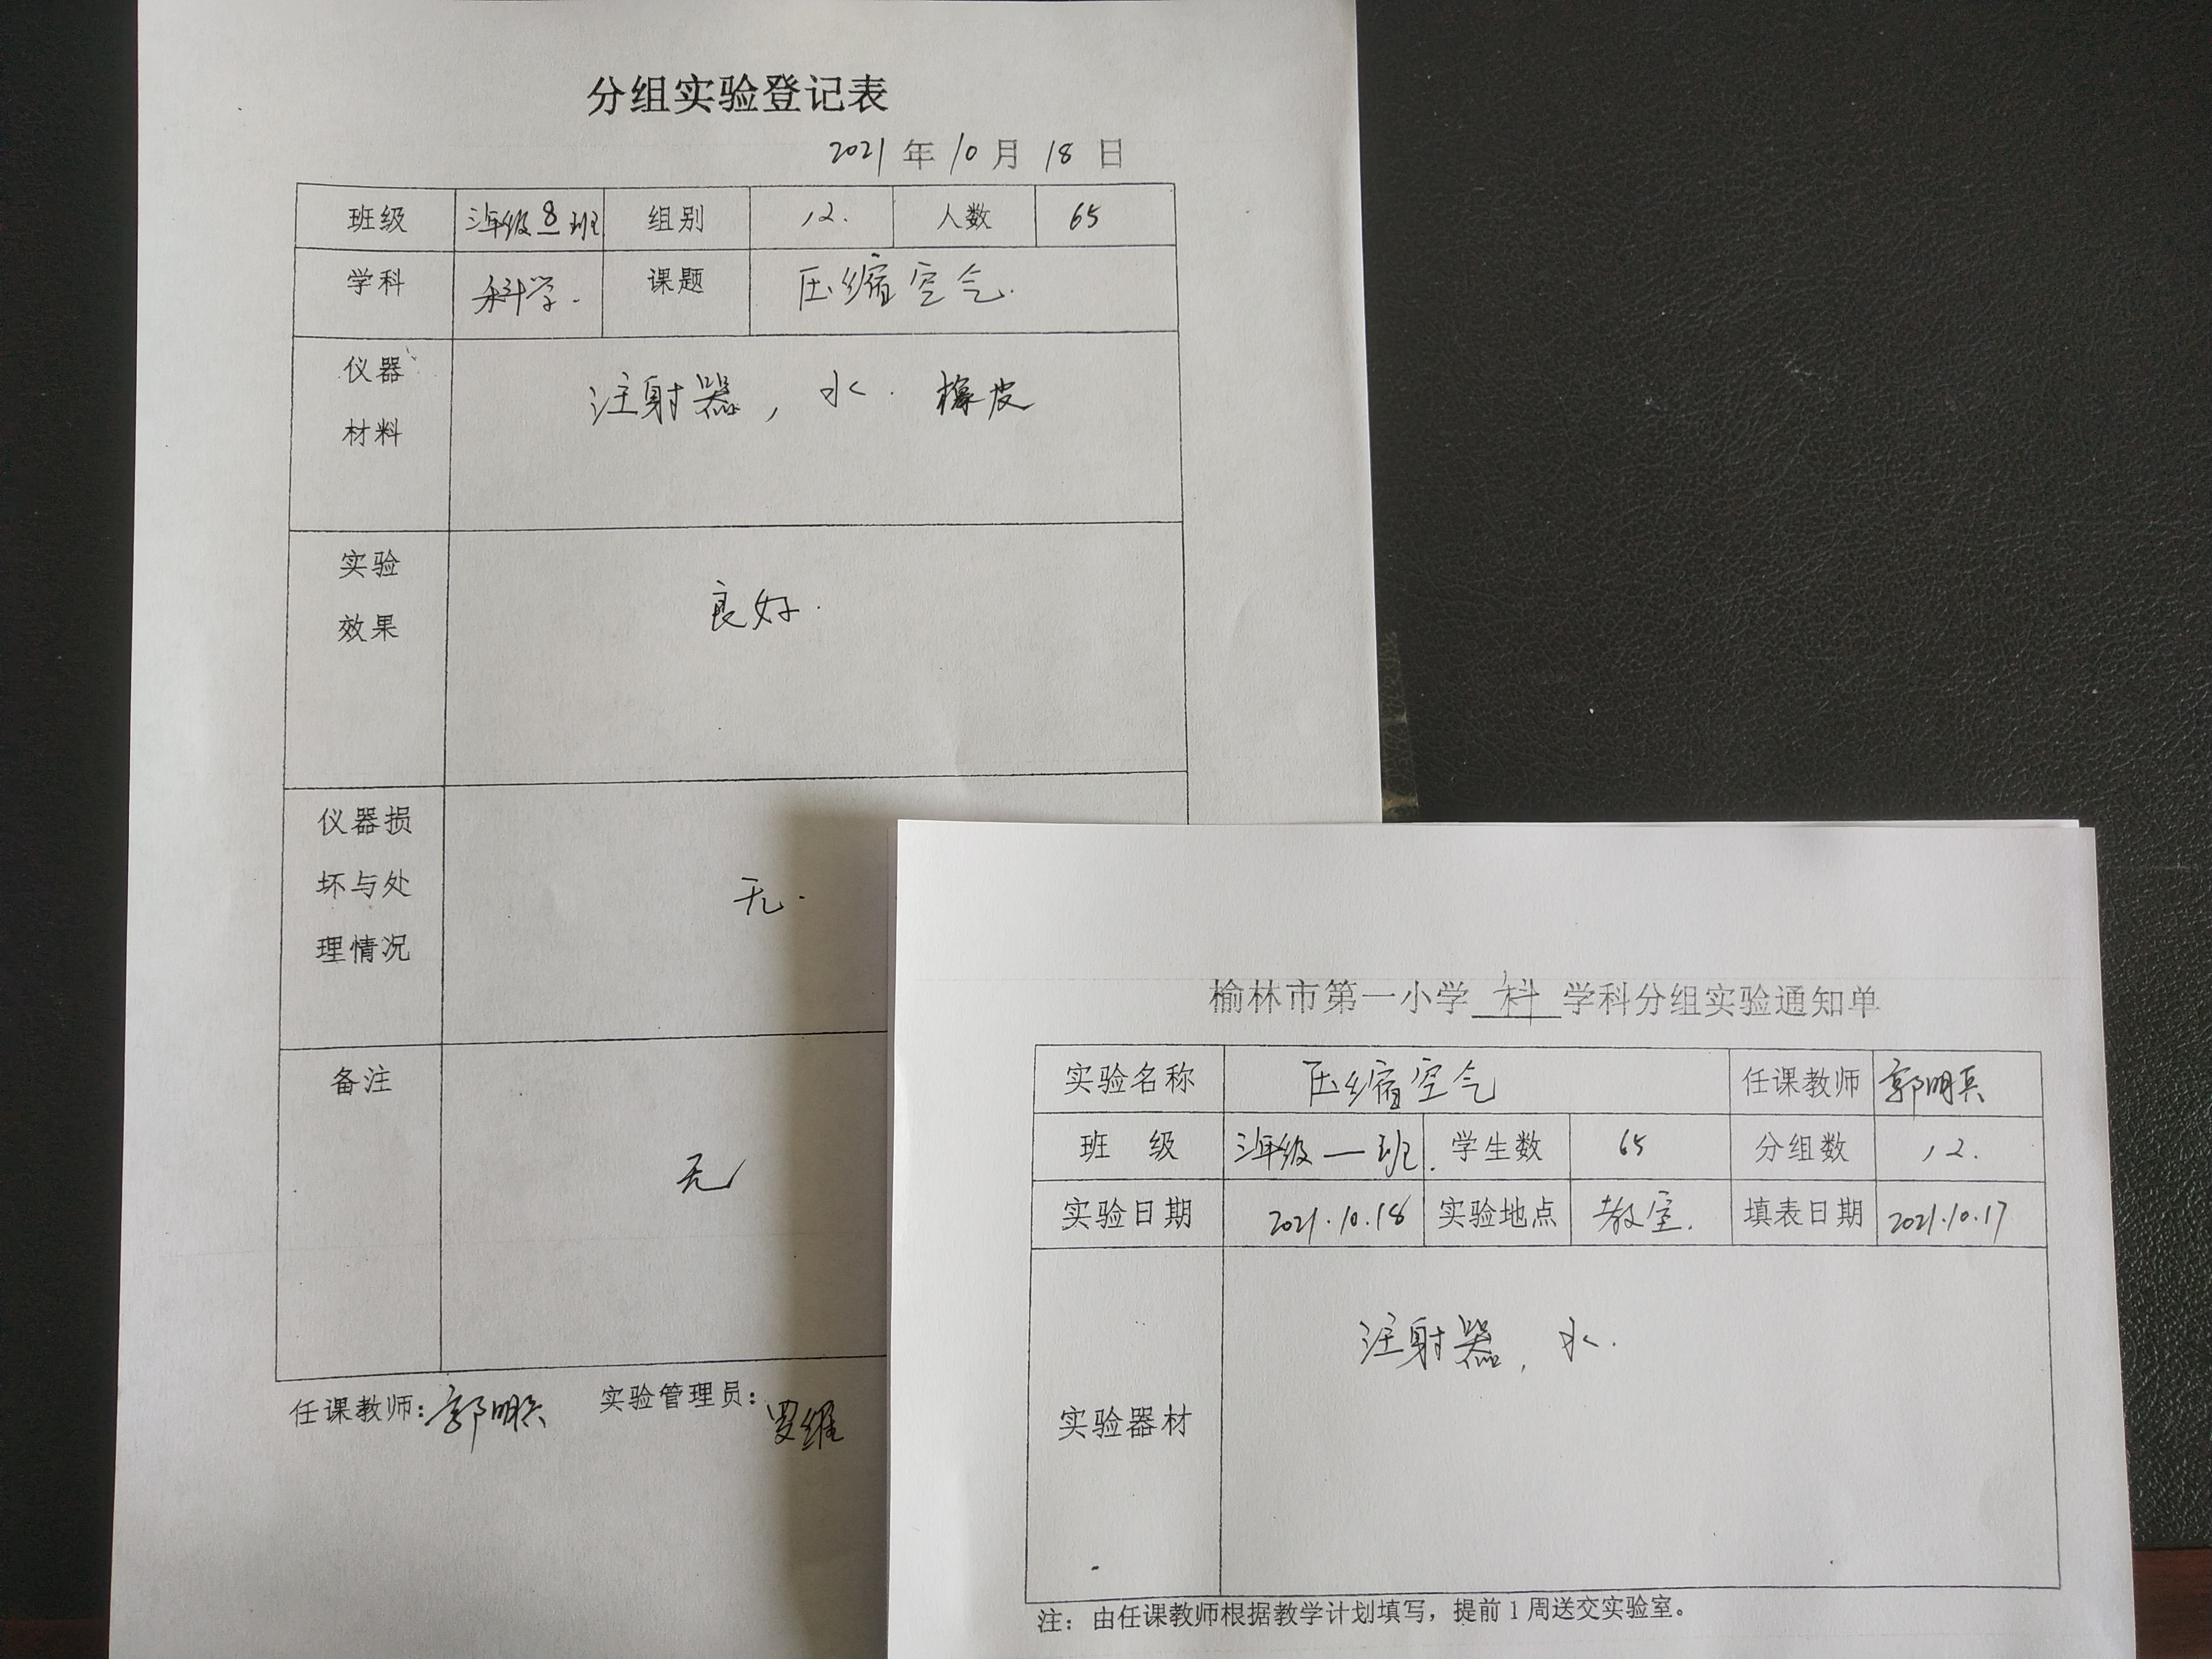 分组实验登记表
2021 年 10 月 18 日
班级 三年级 8 班 组别 12. 人数 65
学科 科学. 课题 压缩空气.
仪器
材料
注射器, 水. 橡皮
实验
效果
良好.
仪器损
坏与处
理情况
无.
备注
无
任课教师:郭明兵 实验管理员:罗维
榆林市第一小学 科 学科分组实验通知单
实验名称 压缩空气 任课教师 郭明兵
班 级 三年级一班. 学生数 65 分组数 12.
实验日期 2021.10.18 实验地点 教室. 填表日期 2021.10.17
实验器材 注射器, 水.
注：由任课教师根据教学计划填写，提前1周送交实验室。